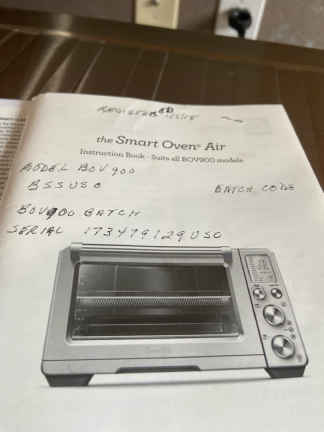 REGISTERED
the Smart Oven® Air
Instruction Book - Suits all BOV900 models
MODEL BOV900
BSSUSC BATCH CODE
BOV900 BATCH
SERIAL 173479129USC